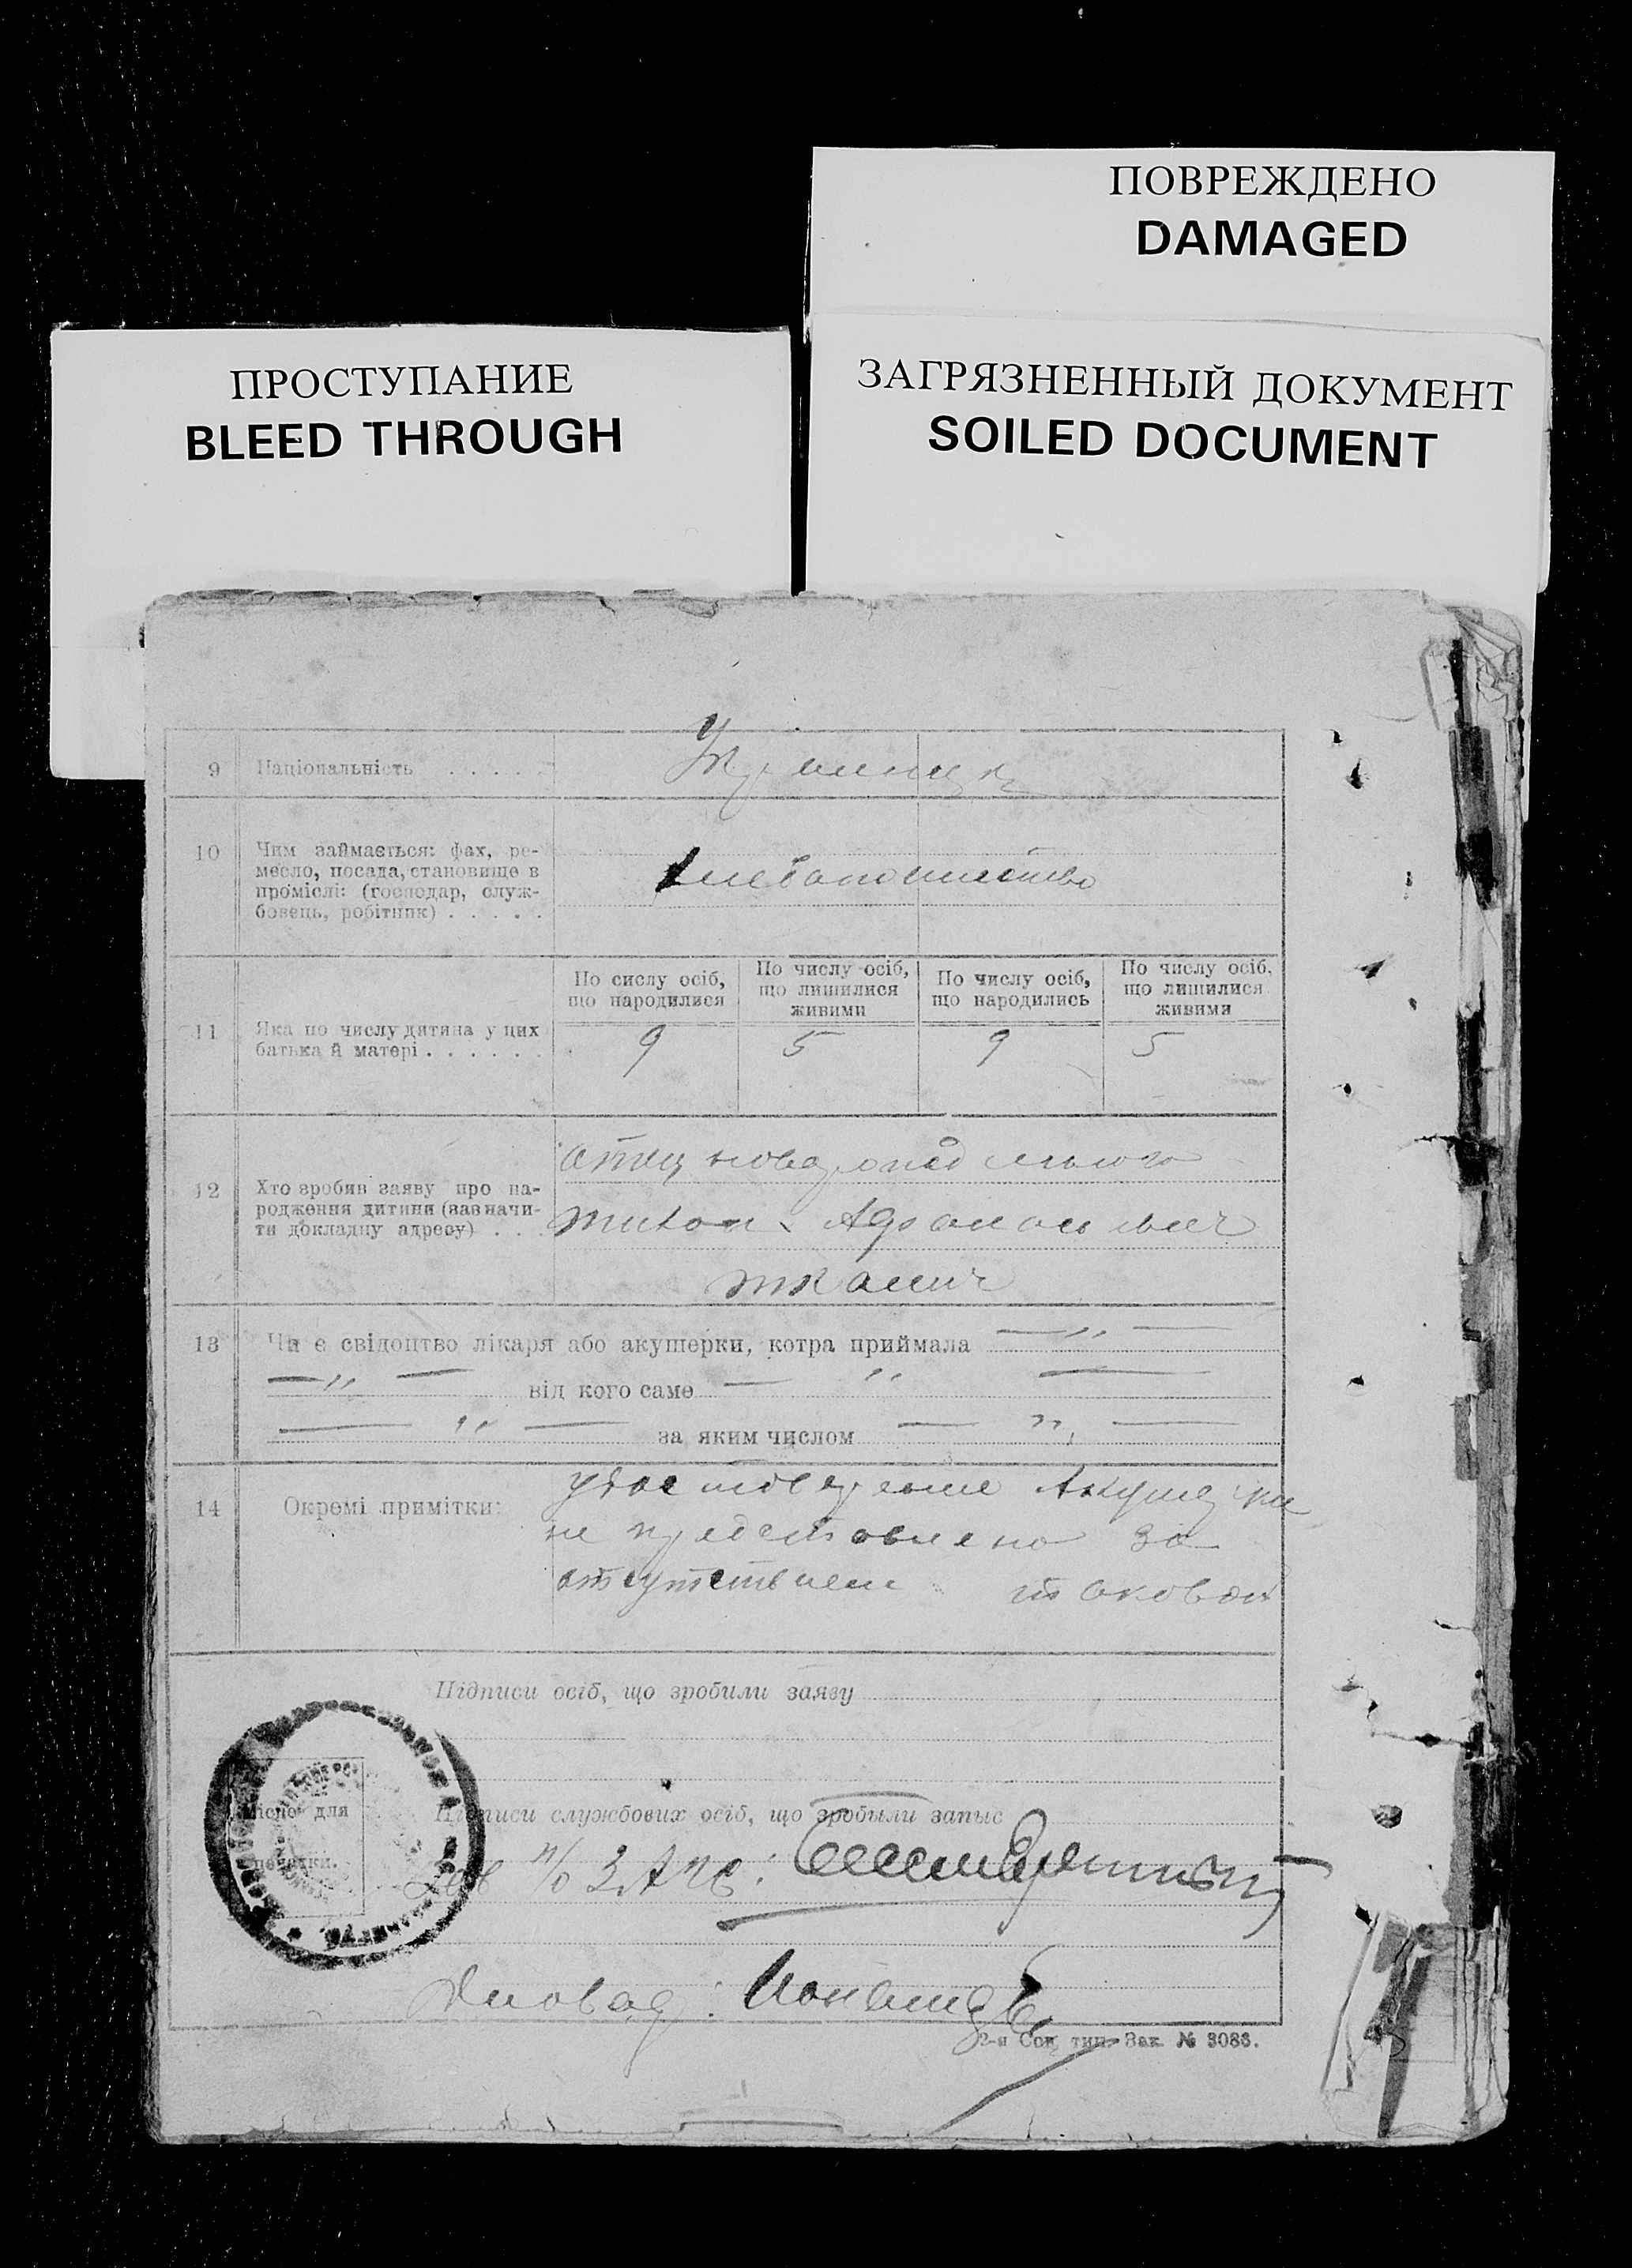 ПОВРЕЖДЕНО
DAMAGED
ПРОСТУПАНИЕ
BLEED THROUGH
ЗАГРЯЗНЕННЫЙ ДОКУМЕНТ
SOILED DOCUMENT
9 Національність . . . . .
10 Чим займається: фах, ре-
месло, посада, становище в
промислі: (господар, служ-
бовець, робітник) . . . . .
Хлебопашество
По сислу осіб,
що народилися
По числу осіб,
що лишилися
живими
По числу осіб,
що народились
По числу осіб,
що лишилися
живими
11 Яка по числу дитина у цих
батька й матері . . . . . .
9 5 9 5
12 Хто зробив заяву про на-
родження дитини (зазначи-
ти докладну адресу) . . .
Отец новорожденного
Тихон Афанасьевич
Ткалич
13 Чи є свідоцтво лікаря або акушерки, котра приймала — " —
— " — від кого саме — " —
— " — за яким числом — " —
14 Окремі примітки:
удостоверение Акушерки
не представлено за
отсутствием таковой
Підписи осіб, що зробили заяву
Місце для
печатки.
Підписи службових осіб, що зробыли запыс
Зав п/о ЗАГС:
Діловод:
2-я Сов. тип. Зак. № 3086.